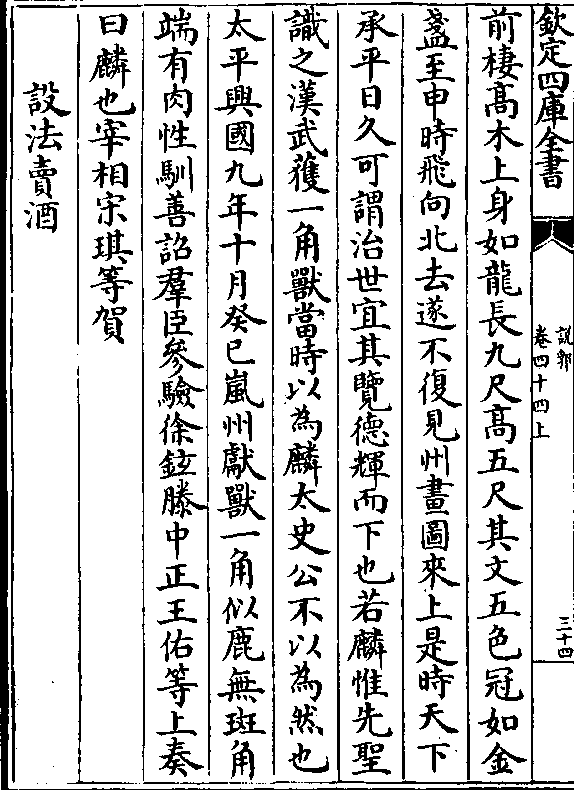 欽定四庫全書
說郛
卷四十四上
三十四
前棲髙木上身如龍長九尺髙五尺其文五色冠如金
盞至申時飛向北去遂不復見州畫圖來上是時天下
承平日久可謂治世宜其覽德輝而下也若麟惟先聖
識之漢武獲一角獸當時以為麟太史公不以為然也
太平興國九年十月癸巳嵐州獻獸一角似鹿無斑角
端有肉性馴善詔羣臣參驗徐鉉滕中正王佑等上奏
曰麟也宰相宋琪等賀
設法賣酒